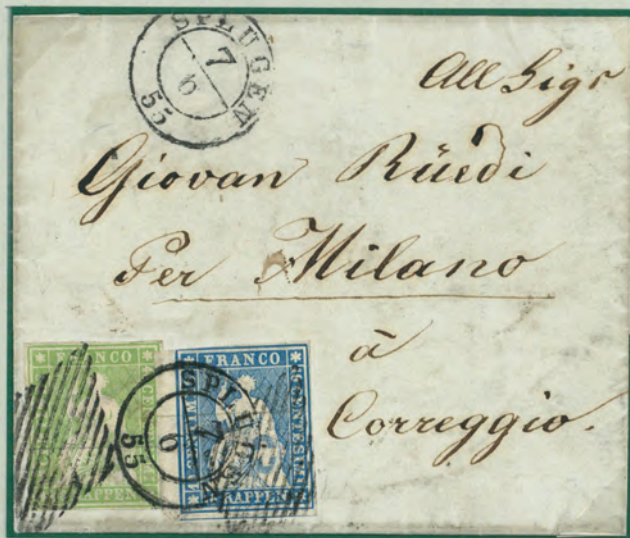 SPLUGEN
7
6
55
All Sigr
Giovan Rüedi
Per Milano
à
Correggio.
FRANCO
RAPPEN
FRANCO
CENTESIMI
RAPPEN
SPLUGEN
7
6
55